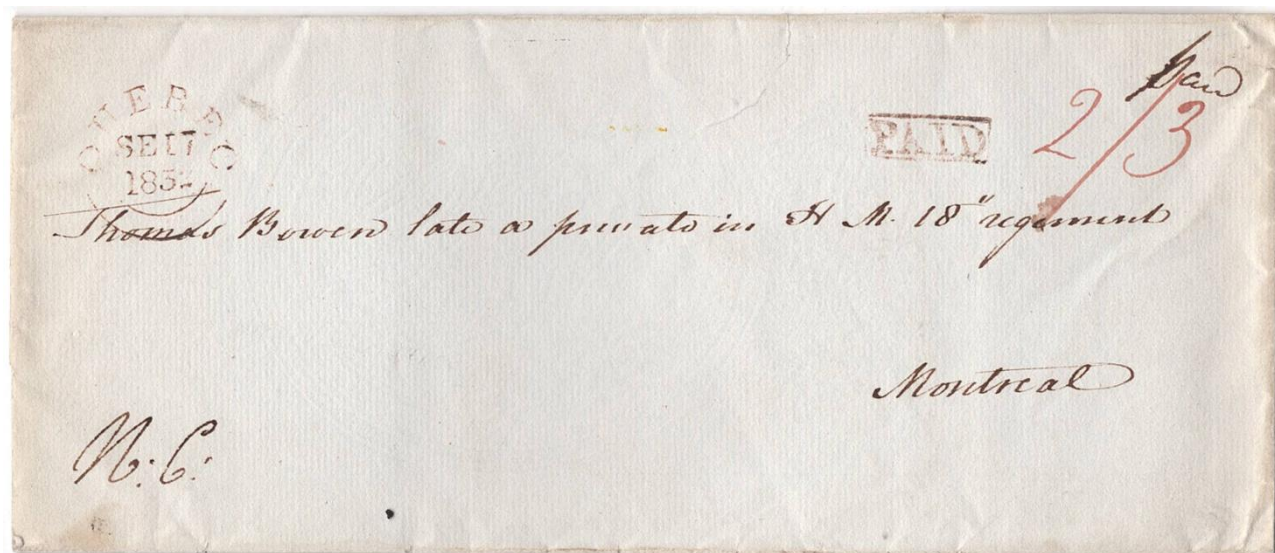 paid
QUEBEC
SE 17
1832
PAID
2/3
Thomas Bowen late a private in H M. 18" regiment
Montreal
N. C.